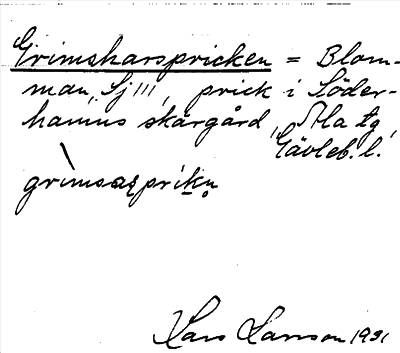 Grimsharspricken = Blom-
man, Sj III, prick i Söder-
hamns skärgård, Ala tg,
Gävleb. l.
grimsaṣpriḳṇ
Lars Larsson 1931